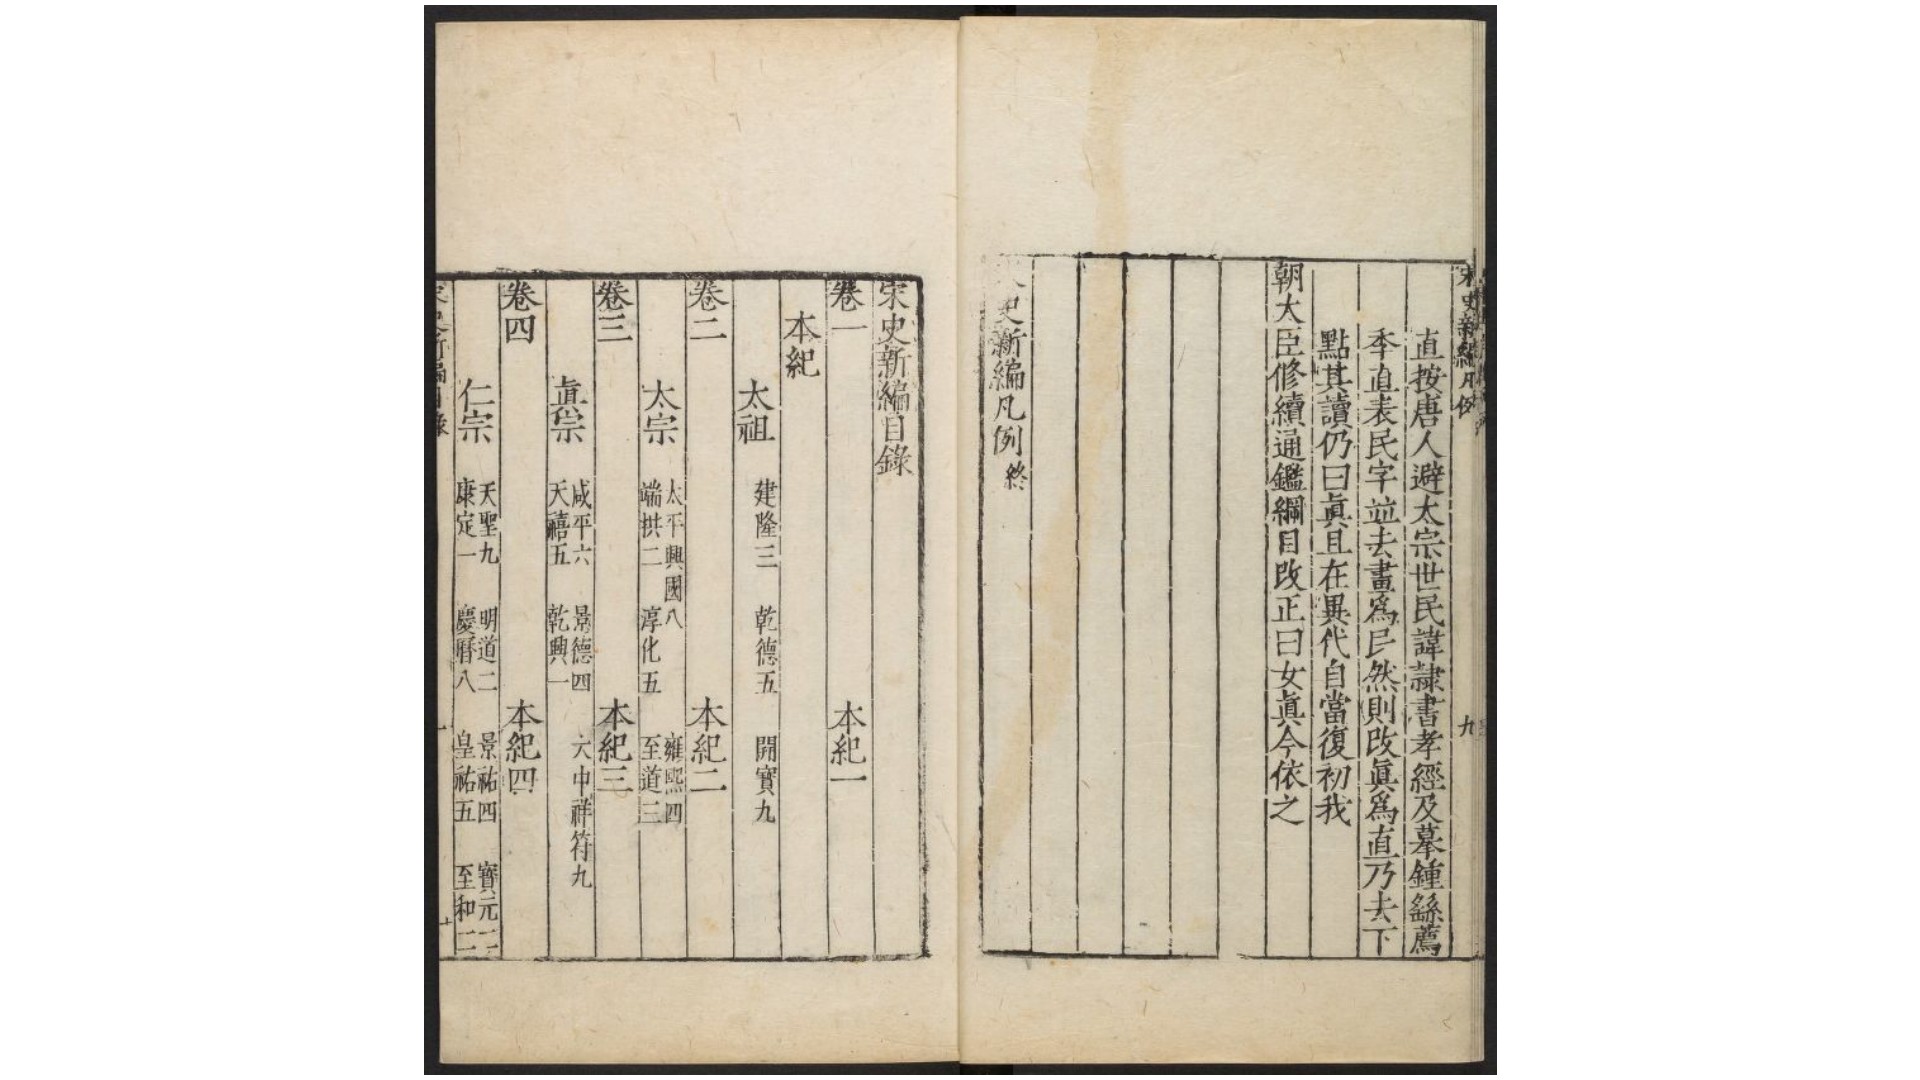 宋史新編凡例
九
直按唐人避太宗世民諱隷書孝經及墓鍾繇薦
季直表民字竝去畫爲𡰱然則改眞爲直乃去下
點其讀仍曰眞且在異代自當復初我
朝大臣修續通鑑綱目改正曰女眞今依之
史新編凡例終
宋史新編目錄
卷一 本紀一
本紀
太祖 建隆三 乾德五 開寶九
卷二 本紀二
太宗 太平興國八 雍熙四
端拱二 淳化五 至道三
卷三 本紀三
眞宗 咸平六 景德四 大中祥符九
天禧五 乾興一
卷四 本紀四
仁宗 天聖九 明道二 景祐四 寶元二
康定一 慶曆八 皇祐五 至和二